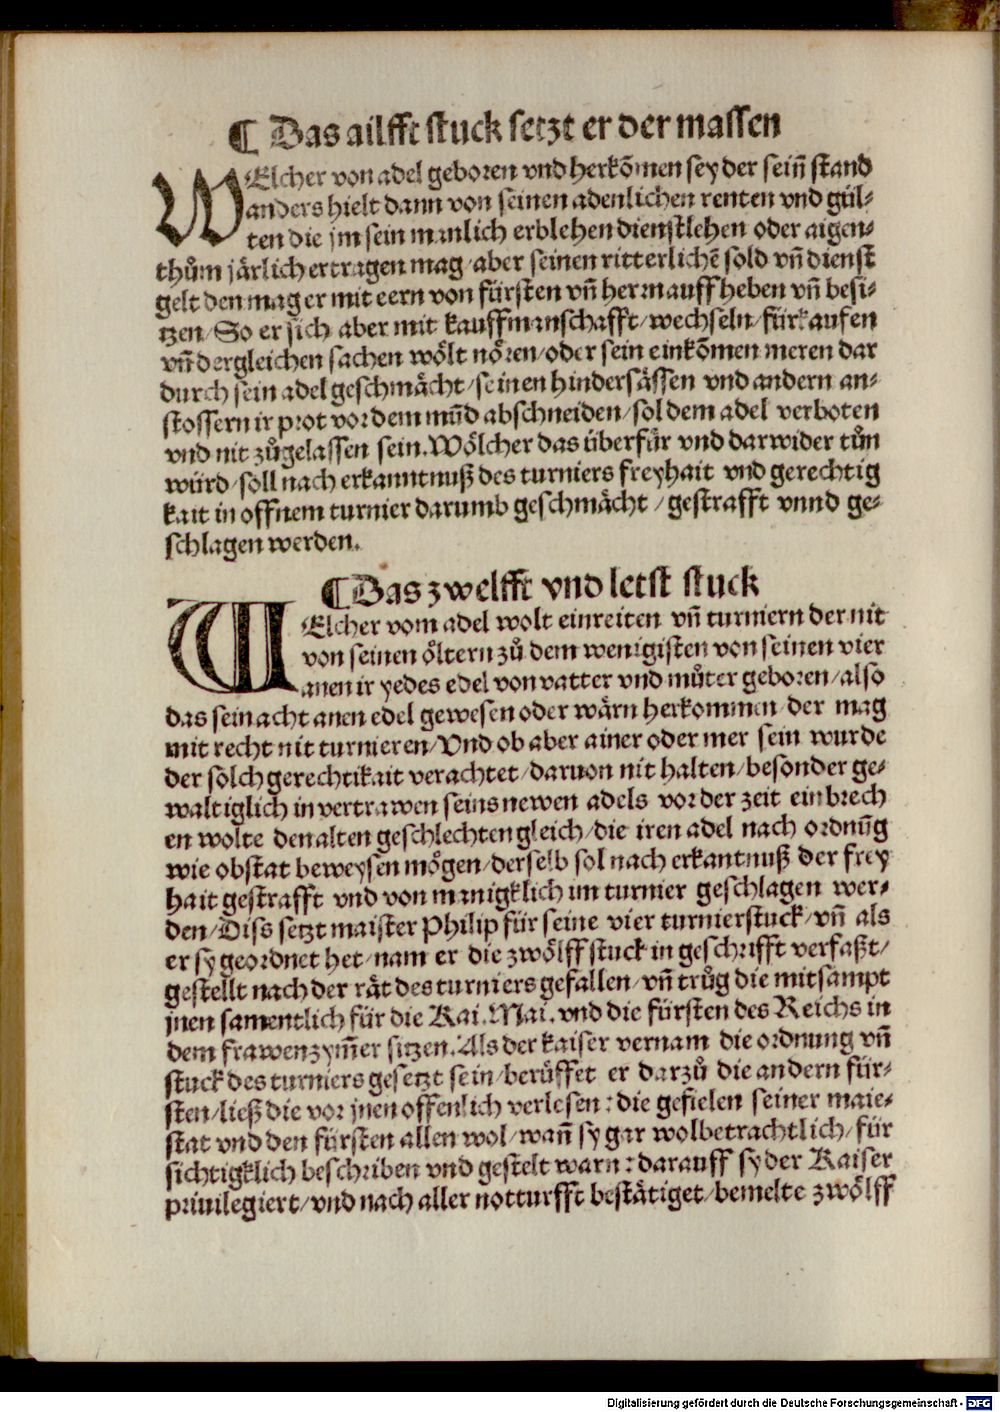 ¶ Das ailfft stuck setzt er der massen
WElcher von adel geboren vnd herkōmen sey der sein̄ stand
anders hielt dann von seinen adenlichen renten vnd gül⸗
ten die jm sein manlich erblehen dienstlehen oder aigen⸗
thům järlich ertragen mag/aber seinen ritterlichē sold vn̄ dienst
gelt den mag er mit eern von fürsten vn̄ herrn auffheben vn̄ besi⸗
tzen/So er sich aber mit kauffmanschafft/wechseln/fürkaufen
vn̄ dergleichen sachen wölt nören/oder sein einkōmen meren dar
durch sein adel geschmächt/seinen hindersässen vnd andern an⸗
stossern ir prot vor dem mūd abschneiden/sol dem adel verboten
vnd nit zůgelassen sein.Wölcher das überfür vnd darwider tůn
würd/soll nach erkanntnuß des turniers freyhait vnd gerechtig
kait in offnem turnier darumb geschmächt/gestrafft vnnd ge⸗
schlagen werden.
¶Das zwelfft vnd letst stuck
WElcher vom adel wolt einreiten vn̄ turniern der nit
von seinen öltern zů dem wenigisten von seinen vier
anen ir yedes edel von vatter vnd můter geboren/also
das sein acht anen edel gewesen oder wärn herkommen/der mag
mit recht nit turnieren/Vnd ob aber ainer oder mer sein wurde
der solch gerechtikait verachtet/daruon nit halten/besonder ge⸗
waltiglich in vertrawen seins newen adels vor der zeit einbrech
en wolte den alten geschlechten gleich/die iren adel nach ordnūg
wie obstat beweysen mögen/derselb sol nach erkantnuß der frey
hait gestrafft vnd von manigklich im turnier geschlagen wer⸗
den/Diss setzt maister Philip für seine vier turnierstuck/vn̄ als
er sy geordnet het/nam er die zwölff stuck in geschrifft verfaßt/
gestellt nach der rät des turniers gefallen/vn̄ trůg die mitsampt
jnen samentlich für die Kai.Mai.vnd die fürsten des Reichs in
dem frawenzym̄er sitzen.Als der kaiser vernam die ordnung vn̄
stuck des turniers gesetzt sein/berüffet er darzů die andern für⸗
sten/ließ die vor jnen offenlich verlesen:die gefielen seiner maie⸗
stat vnd den fürsten allen wol/wan̄ sy gar wolbetrachtlich/für
sichtigklich beschriben vnd gestelt warn:darauff sy der Kaiser
priuilegiert/vnd nach aller notturfft bestätiget/bemelte zwölff
Digitalisierung gefördert durch die Deutsche Forschungsgemeinschaft - DFG